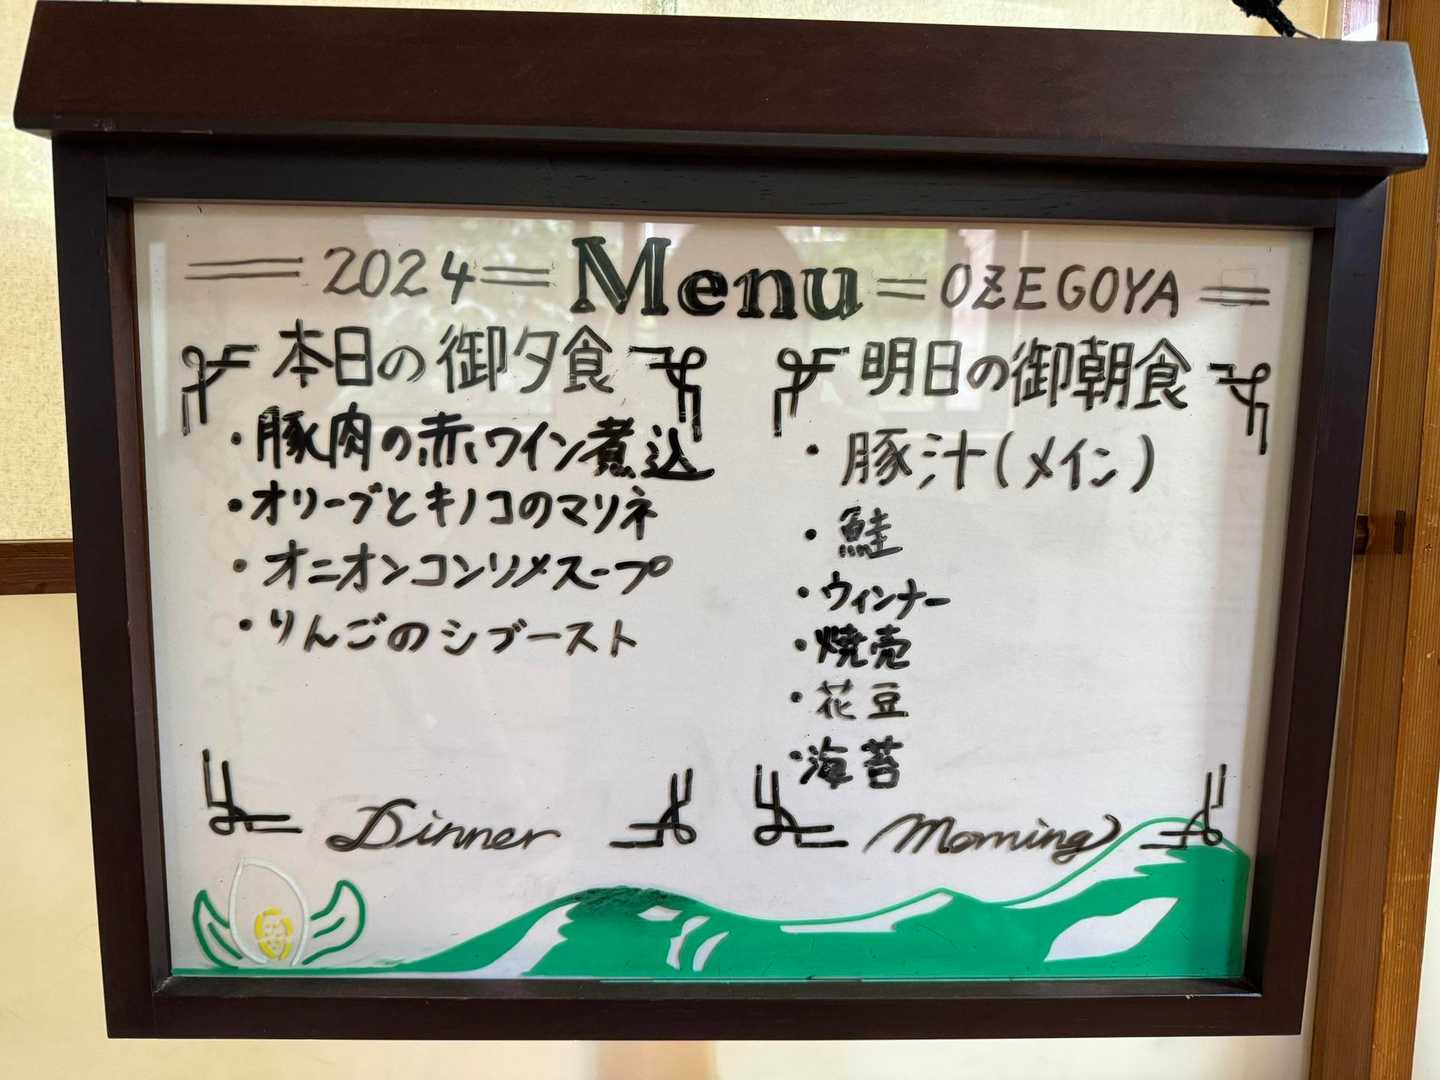 2024 Menu OZEGOYA
本日の御夕食
・豚肉の赤ワイン煮込
・オリーブとキノコのマリネ
・オニオンコンソメスープ
・りんごのシブースト
Dinner
明日の御朝食
・豚汁(メイン)
・鮭
・ウィンナー
・焼売
・花豆
・海苔
Morning